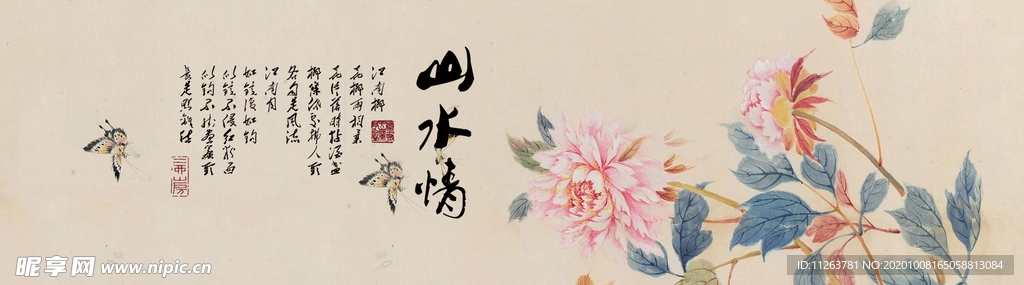 山水情
江南柳
花柳两相柔
花片落時粘酒盞
柳條低處拂人頭
各自是風流
江南月
如鏡復如鉤
似鏡不侵紅粉面
似鉤不挂畫簾頭
長是照離愁
昵享网 www.nipic.cn
ID:11263781 NO:20201008165058813084